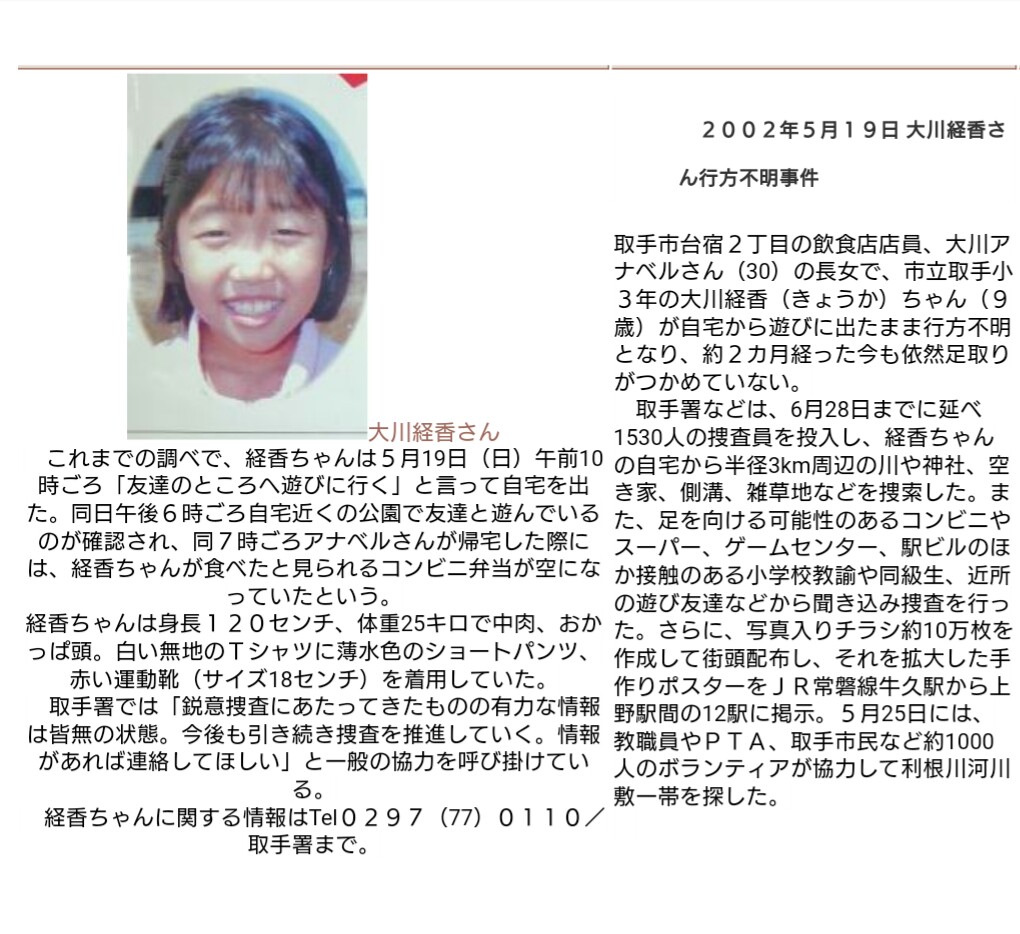 大川経香さん
これまでの調べで、経香ちゃんは５月19日（日）午前10
時ごろ「友達のところへ遊びに行く」と言って自宅を出
た。同日午後６時ごろ自宅近くの公園で友達と遊んでいる
のが確認され、同７時ごろアナベルさんが帰宅した際に
は、経香ちゃんが食べたと見られるコンビニ弁当が空にな
っていたという。
経香ちゃんは身長１２０センチ、体重25キロで中肉、おか
っぱ頭。白い無地のＴシャツに薄水色のショートパンツ、
赤い運動靴（サイズ18センチ）を着用していた。
取手署では「鋭意捜査にあたってきたものの有力な情報
は皆無の状態。今後も引き続き捜査を推進していく。情報
があれば連絡してほしい」と一般の協力を呼び掛けてい
る。
経香ちゃんに関する情報はTel０２９７（77）０１１０／
取手署まで。
２００２年５月１９日 大川経香さ
ん行方不明事件
取手市台宿２丁目の飲食店店員、大川ア
ナベルさん（30）の長女で、市立取手小
３年の大川経香（きょうか）ちゃん（９
歳）が自宅から遊びに出たまま行方不明
となり、約２カ月経った今も依然足取り
がつかめていない。
取手署などは、6月28日までに延べ
1530人の捜査員を投入し、経香ちゃん
の自宅から半径3km周辺の川や神社、空
き家、側溝、雑草地などを捜索した。ま
た、足を向ける可能性のあるコンビニや
スーパー、ゲームセンター、駅ビルのほ
か接触のある小学校教諭や同級生、近所
の遊び友達などから聞き込み捜査を行っ
た。さらに、写真入りチラシ約10万枚を
作成して街頭配布し、それを拡大した手
作りポスターをＪＲ常磐線牛久駅から上
野駅間の12駅に掲示。５月25日には、
教職員やＰＴＡ、取手市民など約1000
人のボランティアが協力して利根川河川
敷一帯を探した。